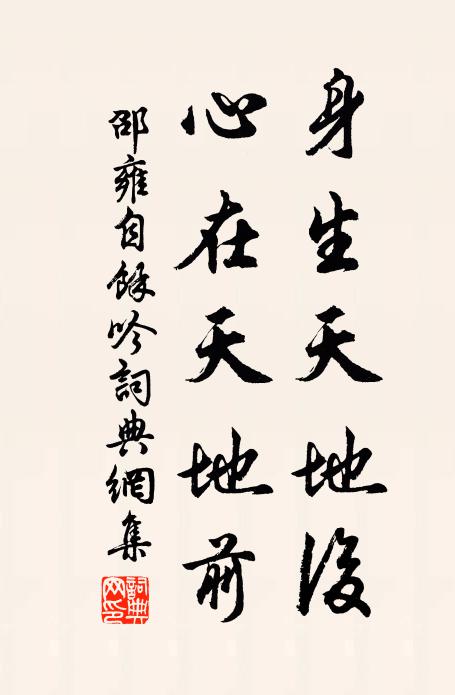 身生天地後
心在天地前
邵雍自餘吟詞典網集
詞典
網印